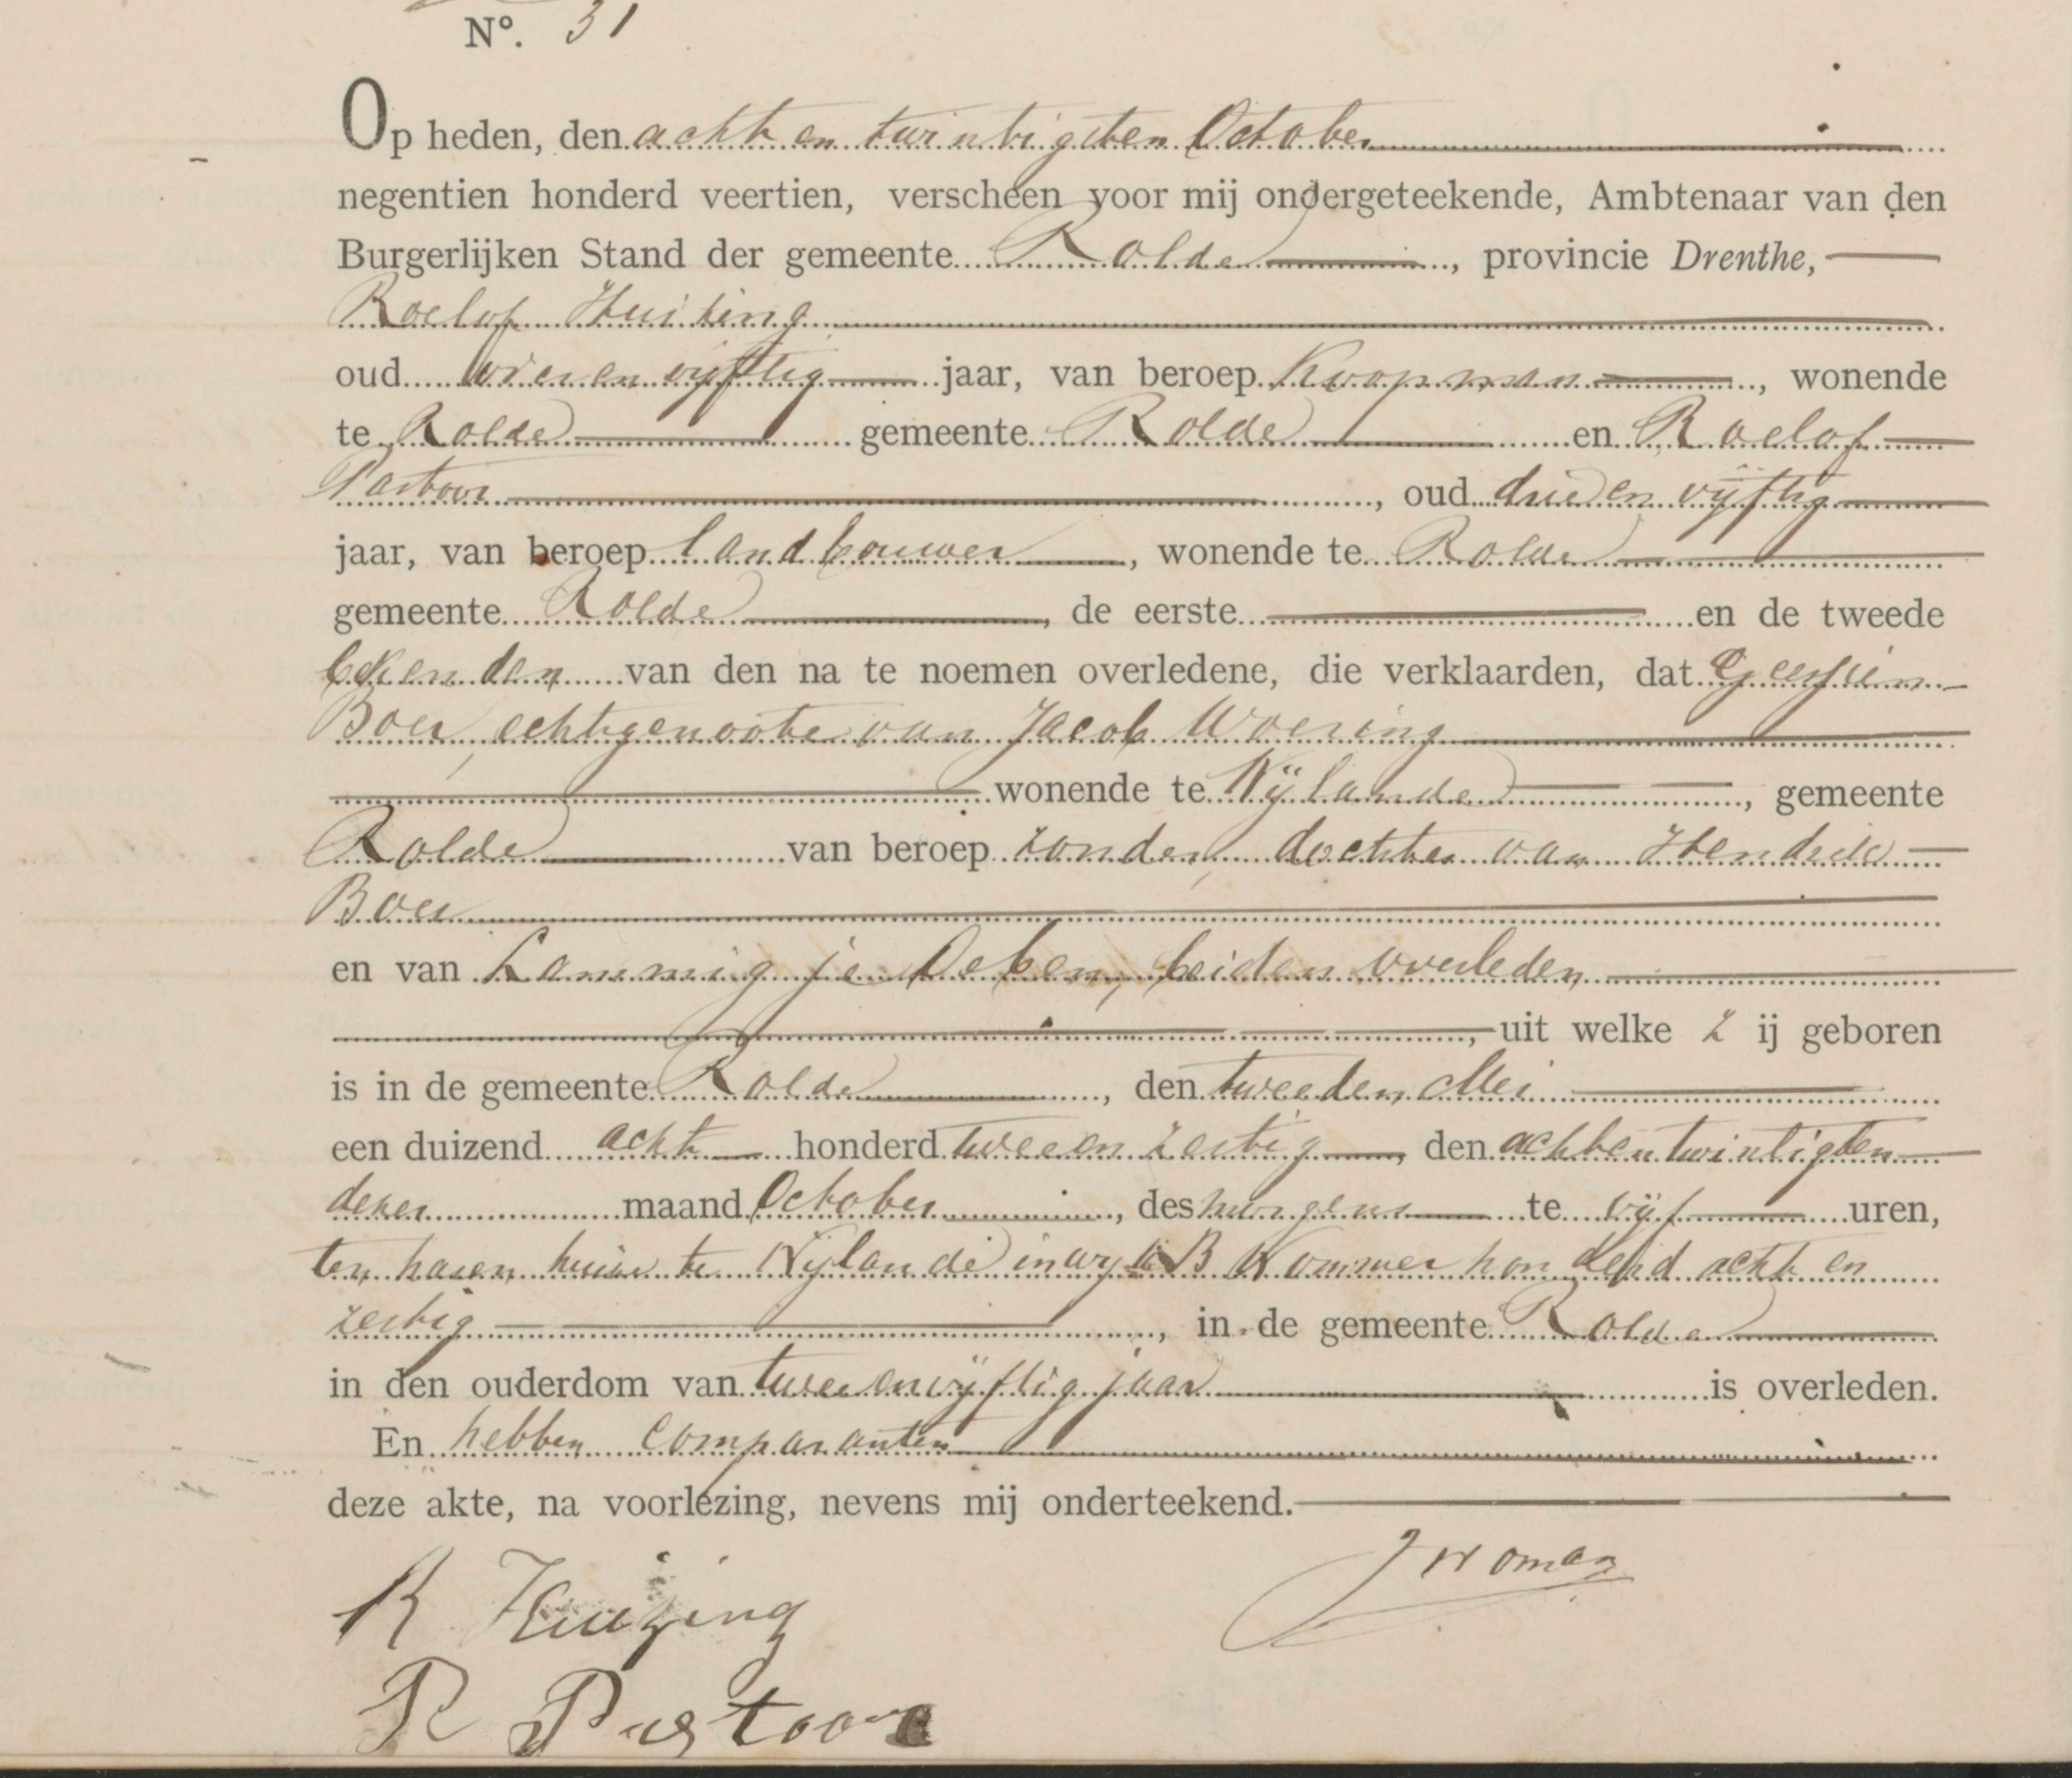 Nº. 31
Op heden, den acht en twintigsten October
negentien honderd veertien, verscheen voor mij ondergeteekende, Ambtenaar van den
Burgerlijken Stand der gemeente Rolde, provincie Drenthe,
Roelof Huizing
oud vier en vijftig jaar, van beroep Koopman, wonende
te Rolde gemeente Rolde en Roelof
Pastoor, oud drie en vijftig
jaar, van beroep landbouwer, wonende te Rolde
gemeente Rolde, de eerste en de tweede
bekenden van den na te noemen overledene, die verklaarden, dat Geessien
Boer, echtgenoote van Jacob Woering
wonende te Nijlande, gemeente
Rolde van beroep zonder, dochter van Hendrik
Boer
en van Lammigje Oeben, beiden overleden
, uit welke Zij geboren
is in de gemeente Rolde, den tweeden Mei
een duizend acht honderd twee en zestig, den achtentwintigsten
dezer maand October, des morgens te vijf uren,
ten haren huize te Nijlande in wijk B Nommer honderd acht en
zestig, in de gemeente Rolde
in den ouderdom van twee en vijftig jaar is overleden.
En hebben comparanten
deze akte, na voorlezing, nevens mij onderteekend.
J Homan
R Huizing
R Pastoor